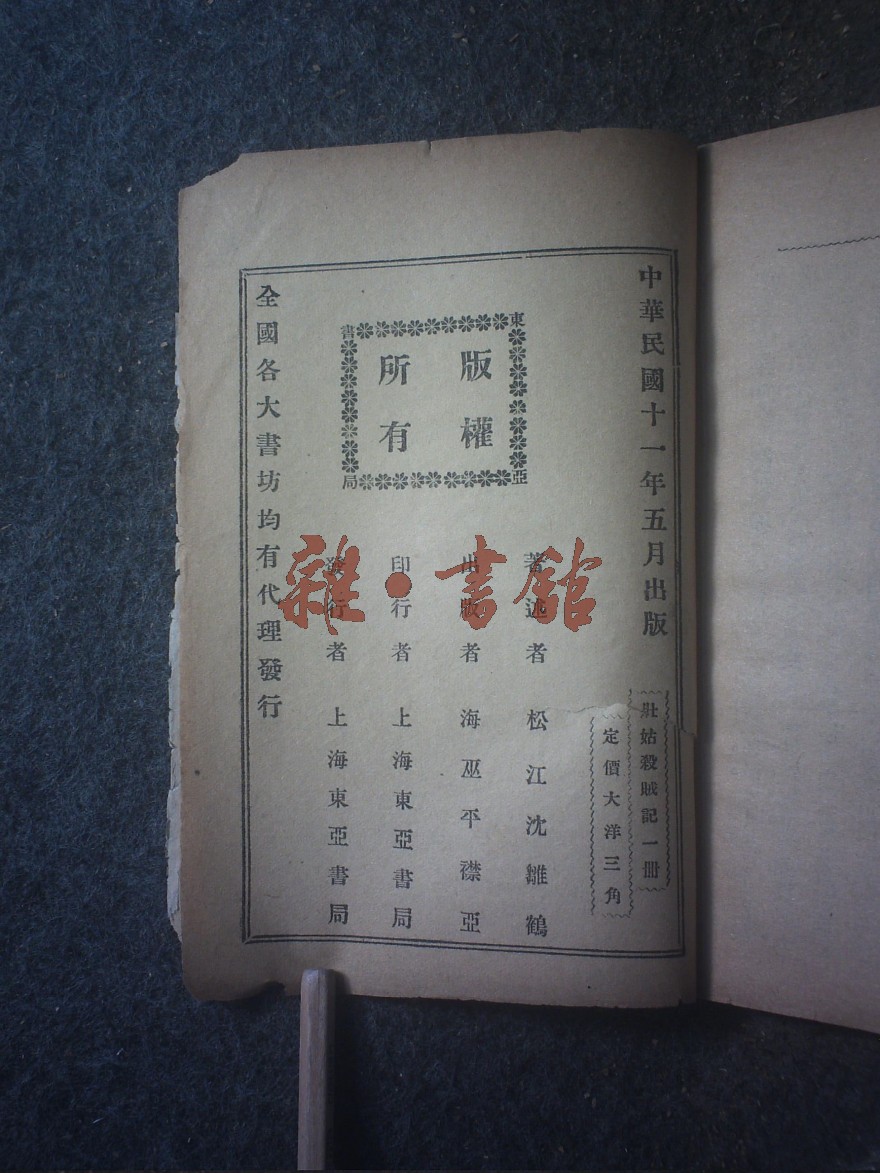 中華民國十一年五月出版
壯姑殺賊記一冊
定價大洋三角
東亞書局
版權
所有
著述者 松江沈雛鶴
出版者 海巫平襟亞
印行者 上海東亞書局
發行者 上海東亞書局
全國各大書坊均有代理發行
雜·書館